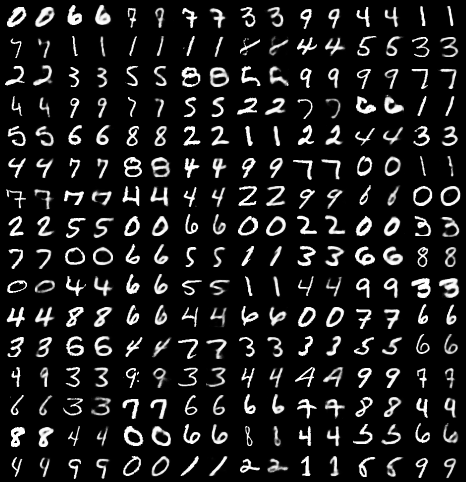 0 0 6 6 7 7 7 7 3 3 9 9 4 4 1 1
7 7 1 1 1 1 1 1 8 8 4 4 5 5 3 3
2 2 3 3 5 5 8 8 5 5 9 9 9 9 7 7
4 4 9 9 7 7 5 5 2 2 7 7 6 6 1 1
5 5 6 6 8 8 2 2 1 1 2 2 4 4 3 3
4 4 7 7 8 8 4 4 9 9 7 7 0 0 1 1
7 7 7 7 4 4 4 4 2 2 9 9 6 6 0 0
2 2 5 5 0 0 6 6 0 0 2 2 0 0 3 3
7 7 0 0 6 6 5 5 1 1 3 3 6 6 8 8
0 0 4 4 6 6 5 5 1 1 4 4 9 9 3 3
4 4 8 8 6 6 4 4 6 6 0 0 7 7 6 6
3 3 6 6 4 4 7 7 3 3 3 3 5 5 6 6
9 9 3 3 9 9 3 3 4 4 4 4 9 9 7 7
6 6 3 3 7 7 6 6 6 6 7 7 8 8 4 4
8 8 4 4 0 0 6 6 8 8 4 4 5 5 6 6
4 4 9 9 0 0 1 1 2 2 1 1 5 5 9 9